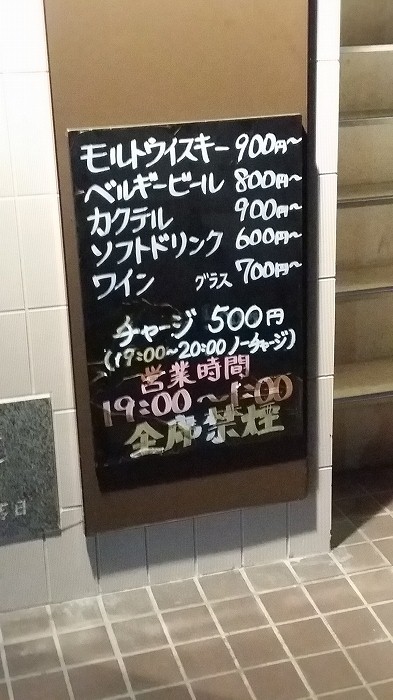 モルトウイスキー 900円〜
ベルギービール 800円〜
カクテル 900円〜
ソフトドリンク 600円〜
ワイン グラス 700円〜
チャージ 500円
(19:00〜20:00 ノーチャージ)
営業時間
19:00〜1:00
全席禁煙
日